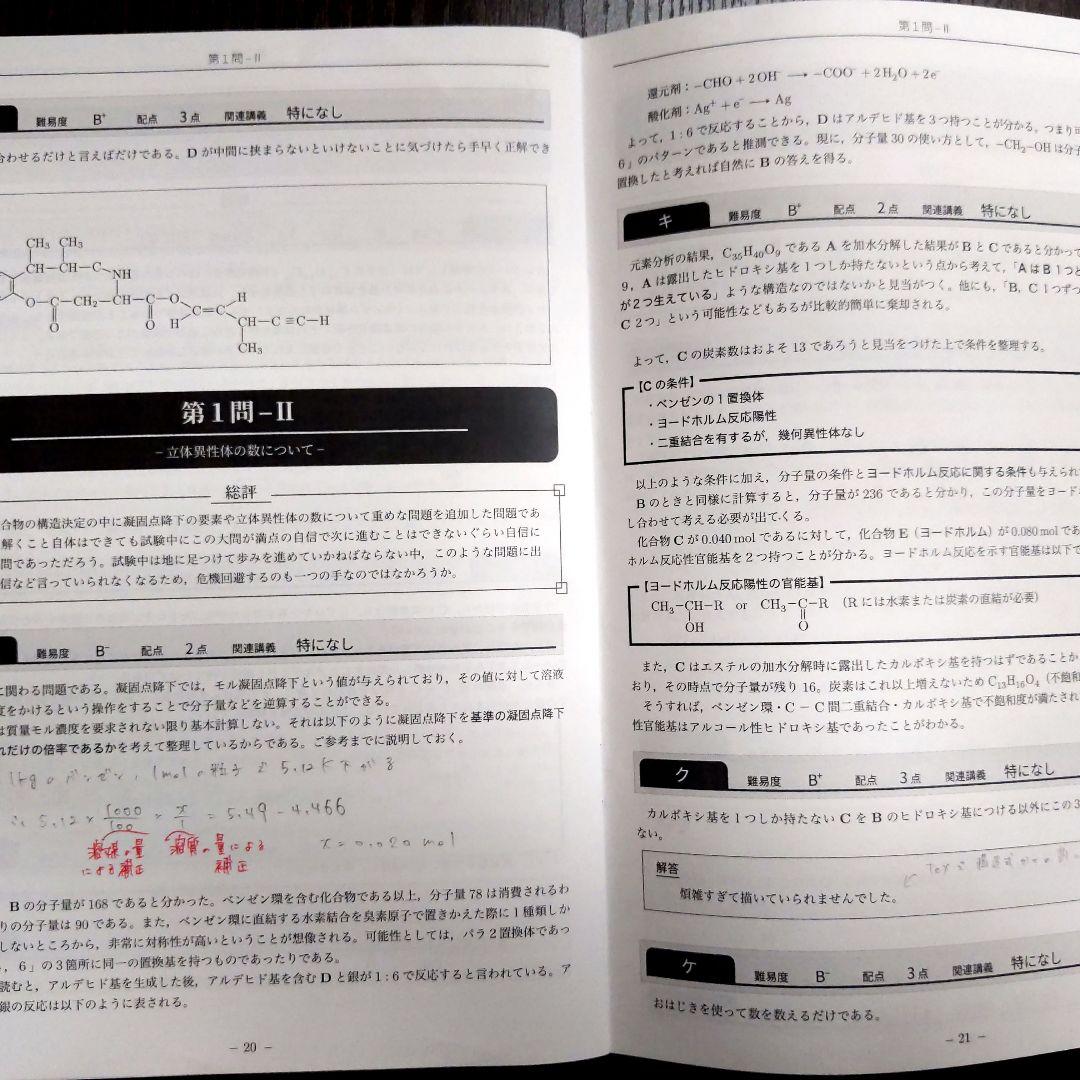 第1問−II
難易度 B+ 配点 3点 関連講義 特になし
合わせるだけと言えばだけである。Dが中間に挟まらないといけないことに気づけたら手早く正解でき
CH₃ CH₃
CH−CH−C
NH
O−C−CH₂−CH−C−O
O O
H C=C H
CH−C≡C−H
CH₃
第1問−II
−立体異性体の数について−
総評
合物の構造決定の中に凝固点降下の要素や立体異性体の数について重めな問題を追加した問題であ
解くこと自体はできても試験中にこの大問が満点の自信で次に進むことはできないぐらい自信に
問であっただろう。試験中は地に足つけて歩みを進めていかねばならない中，このような問題に出
信など言っていられなくなるため，危機回避するのも一つの手なのではなかろうか。
難易度 B− 配点 2点 関連講義 特になし
に関わる問題である。凝固点降下では，モル凝固点降下という値が与えられており，その値に対して溶液
度をかけるという操作をすることで分子量などを逆算することができる。
は質量モル濃度を要求されない限り基本計算しない。それは以下のように凝固点降下を基準の凝固点降下
れだけの倍率であるかを考えて整理しているからである。ご参考までに説明しておく。
1kgのベンゼン，1molの粒子で5.12K下がる
∴ 5.12 × 1000/100 × x/1 = 5.49 − 4.466
溶媒の量による補正 溶質の量による補正
x = 0.020 mol
Bの分子量が168であると分かった。ベンゼン環を含む化合物である以上，分子量78は消費されるわ
りの分子量は90である。また，ベンゼン環に直結する水素結合を臭素原子で置きかえた際に1種類しか
しないところから，非常に対称性が高いということが想像される。可能性としては，パラ2置換体であっ
，6」の3箇所に同一の置換基を持つものであったりである。
読むと，アルデヒド基を生成した後，アルデヒド基を含むDと銀が1:6で反応すると言われている。ア
銀の反応は以下のように表される。
− 20 −
第1問−II
還元剤：−CHO + 2OH⁻ ⟶ −COO⁻ + 2H₂O + 2e⁻
酸化剤：Ag⁺ + e⁻ ⟶ Ag
よって，1:6で反応することから，Dはアルデヒド基を3つ持つことが分かる。つまり
6」のパターンであると推測できる。現に，分子量30の使い方として，−CH₂−OHは分子
置換したと考えれば自然にBの答えを得る。
キ 難易度 B+ 配点 2点 関連講義 特になし
元素分析の結果，C₃₅H₄₀O₉であるAを加水分解した結果がBとCであると分かって
9，Aは露出したヒドロキシ基を1つしか持たないという点から考えて，「AはB1つと
が2つ生えている」ような構造なのではないかと見当がつく。他にも，「B，C1つずつ
C2つ」という可能性などもあるが比較的簡単に棄却される。
よって，Cの炭素数はおよそ13であろうと見当をつけた上で条件を整理する。
【Cの条件】
・ベンゼンの1置換体
・ヨードホルム反応陽性
・二重結合を有するが，幾何異性体なし
以上のような条件に加え，分子量の条件とヨードホルム反応に関する条件も与えられ
Bのときと同様に計算すると，分子量が236であると分かり，この分子量をヨード
し合わせて考える必要が出てくる。
化合物Cが0.040molであるに対して，化合物E（ヨードホルム）が0.080molであ
ホルム反応性官能基を2つ持つことが分かる。ヨードホルム反応を示す官能基は以下で
【ヨードホルム反応陽性の官能基】
CH₃−CH−R or CH₃−C−R （Rには水素または炭素の直結が必要）
OH O
また，Cはエステルの加水分解時に露出したカルボキシ基を持つはずであることか
おり，その時点で分子量が残り16。炭素はこれ以上増えないためC₁₃H₁₆O₄（不飽和
そうすれば，ベンゼン環・C−C間二重結合・カルボキシ基で不飽和度が満たされ
性官能基はアルコール性ヒドロキシ基であったことがわかる。
ク 難易度 B+ 配点 3点 関連講義 特になし
カルボキシ基を1つしか持たないCをBのヒドロキシ基につける以外にこの3
ない。
解答
煩雑すぎて描いていられませんでした。
ケ 難易度 B− 配点 3点 関連講義 特になし
おはじきを使って数を数えるだけである。
− 21 −